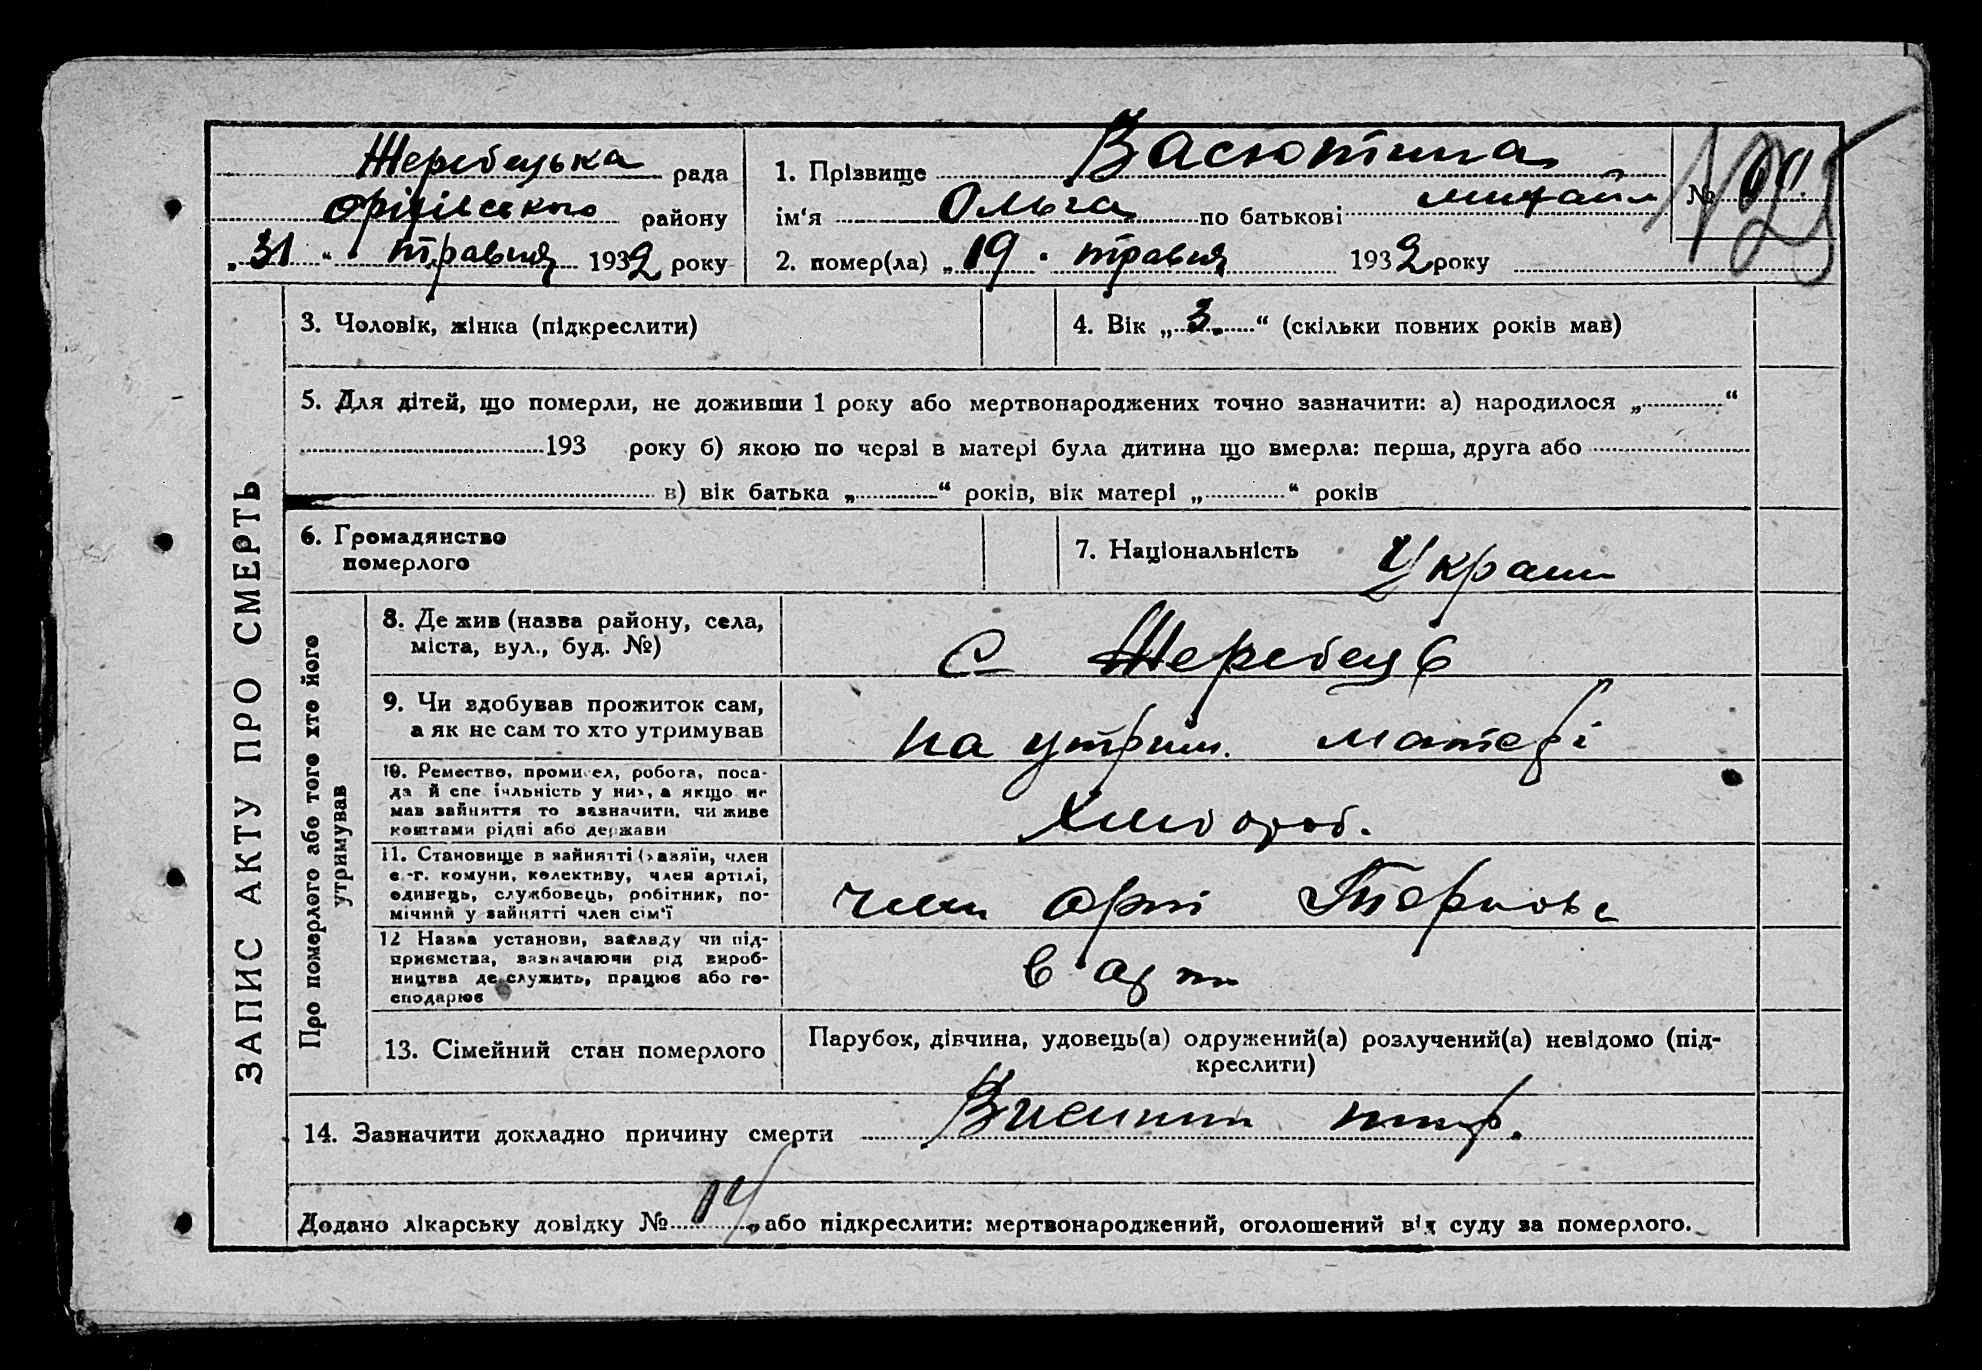 Жеребецька рада
Оріхівського району
„31“ травня 1932 року
1. Прізвище Васютина
ім‘я Ольга по батькові михайл
2. помер(ла) „19 травня 1932 року
№
№ 25
ЗАПИС АКТУ ПРО СМЕРТЬ
3. Чоловік, жінка (підкреслити)
4. Вік „3.“ (скільки повних років мав)
5. Для дітей, що померли, не доживши 1 року або мертвонароджених точно зазначити: а) народилося „ “
193 року б) якою по черзі в матері була дитина що вмерла: перша, друга або
в) вік батька „ “ років, вік матері „ “ років
6. Громадянство
померлого
7. Національність Україн
Про померлого або того хто його
утримував
8. Де жив (назва району, села,
міста, вул., буд. №)
с Жеребець
9. Чи здобував прожиток сам,
а як не сам то хто утримував
на утрим. матері
10. Ремество, промисел, робота, поса-
да й спеціяльність у них, а якщо не
мав зайняття то зазначити, чи живе
коштами рідні або держави
Хлібороб.
11. Становище в зайнятті (хазяїн, член
с.-г. комуни, колективу, член артілі,
одинець, службовець, робітник, по-
мічний у зайнятті член сім‘ї
член арт
12 Назва установи, закладу чи під-
приємства, зазначаючи рід вироб-
ництва де служить, працює або го-
сподарює
в арт
13. Сімейний стан померлого
Парубок, дівчина, удовець(а) одружений(а) розлучений(а) невідомо (під-
креслити)
14. Зазначити докладно причину смерти
Додано лікарську довідку № 14 „або підкреслити: мертвонароджений, оголошений від суду за померлого.